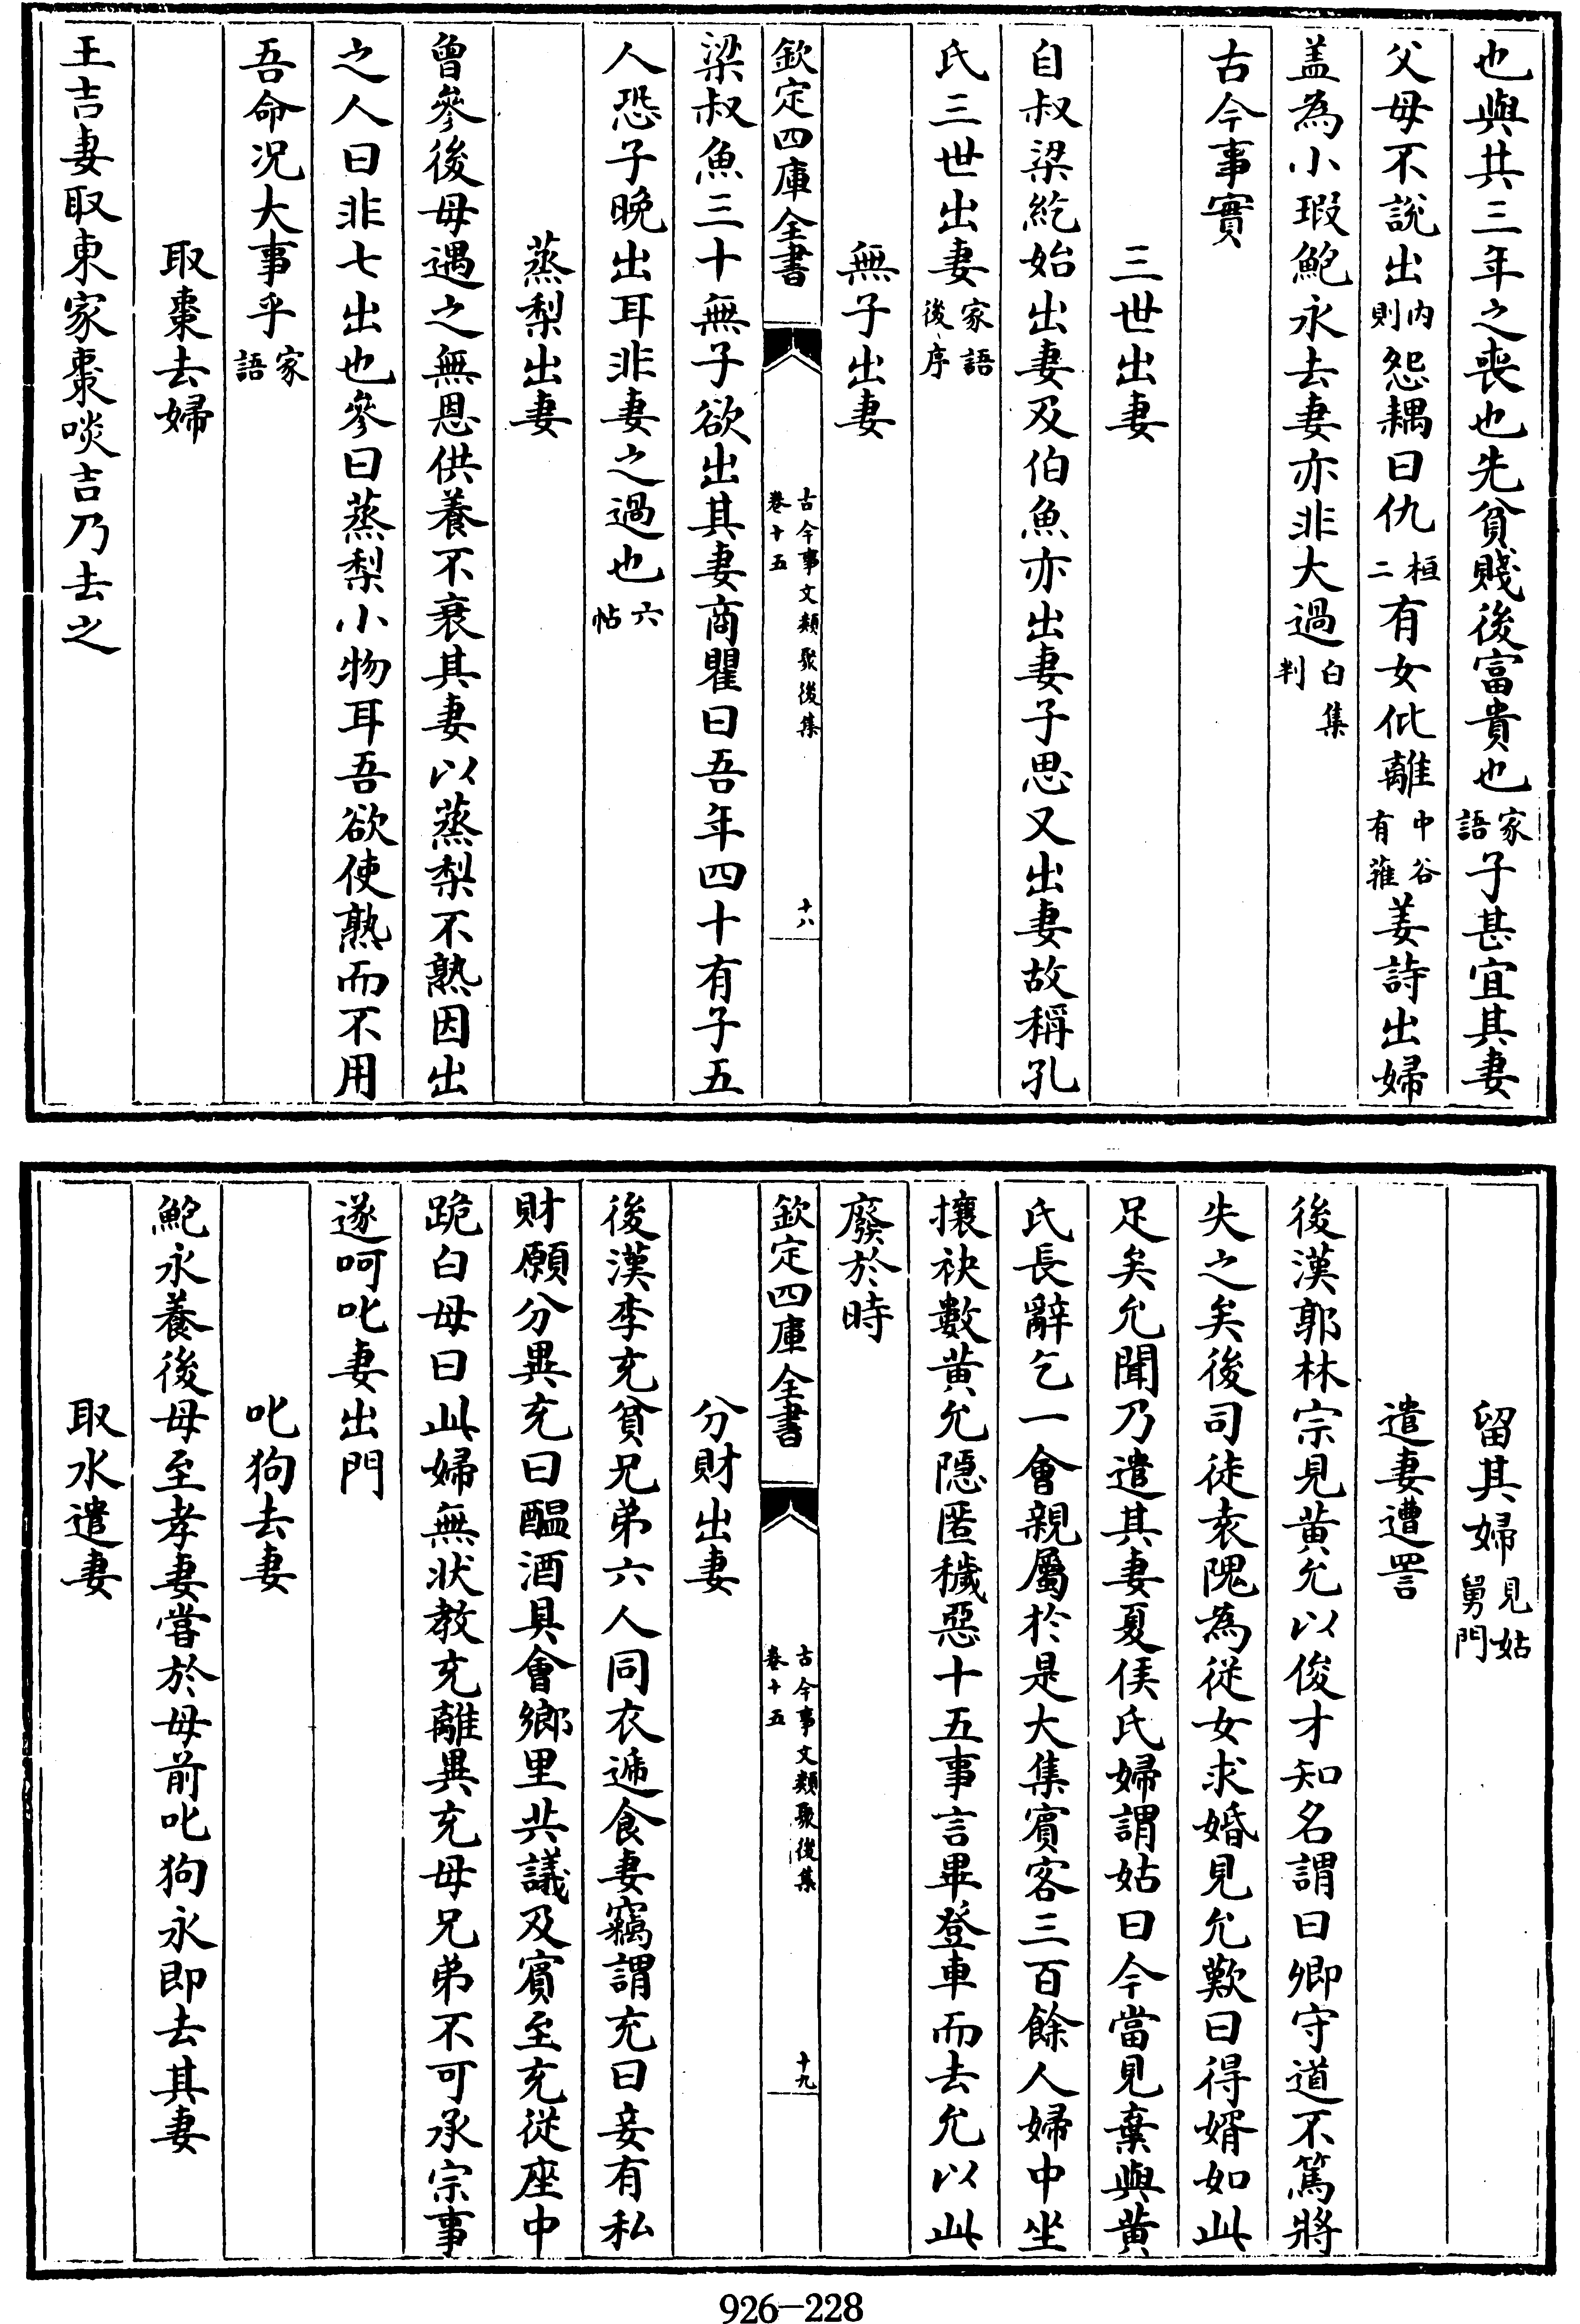 也與共三年之喪也先貧賤後富貴也家語子甚宜其妻
父母不說出内則怨耦曰仇桓二有女仳離中谷有蓷姜詩出婦
盖為小瑕鮑永去妻亦非大過白集判
古今事實
三世出妻
自叔梁紇始出妻及伯魚亦出妻子思又出妻故稱孔
氏三世出妻家語後序
無子出妻
欽定四庫全書
古今事文類聚後集
卷十五
十八
梁叔魚三十無子欲出其妻商瞿曰吾年四十有子五
人恐子晚出耳非妻之過也六帖
蒸梨出妻
曾參後母遇之無恩供養不衰其妻以蒸梨不熟因出
之人曰非七出也參曰蒸梨小物耳吾欲使熟而不用
吾命况大事乎家語
取棗去婦
王吉妻取東家棗啖吉乃去之
留其婦見姑舅門
遣妻遭詈
後漢郭林宗見黄允以俊才知名謂曰卿守道不篤將
失之矣後司徒袁隗為從女求婚見允歎曰得婿如此
足矣允聞乃遣其妻夏侯氏婦謂姑曰今當見棄與黄
氏長辭乞一會親屬於是大集賓客三百餘人婦中坐
攘袂數黄允隱匿穢惡十五事言畢登車而去允以此
廢於時
欽定四庫全書
古今事文類聚後集
卷十五
十九
分財出妻
後漢李充貧兄弟六人同衣遞食妻竊謂充曰妾有私
財願分異充曰醖酒具會鄉里共議及賓至充從座中
跪白母曰此婦無狀教充離異充母兄弟不可承宗事
遂呵叱妻出門
叱狗去妻
鮑永養後母至孝妻嘗於母前叱狗永即去其妻
取水遣妻
926-228